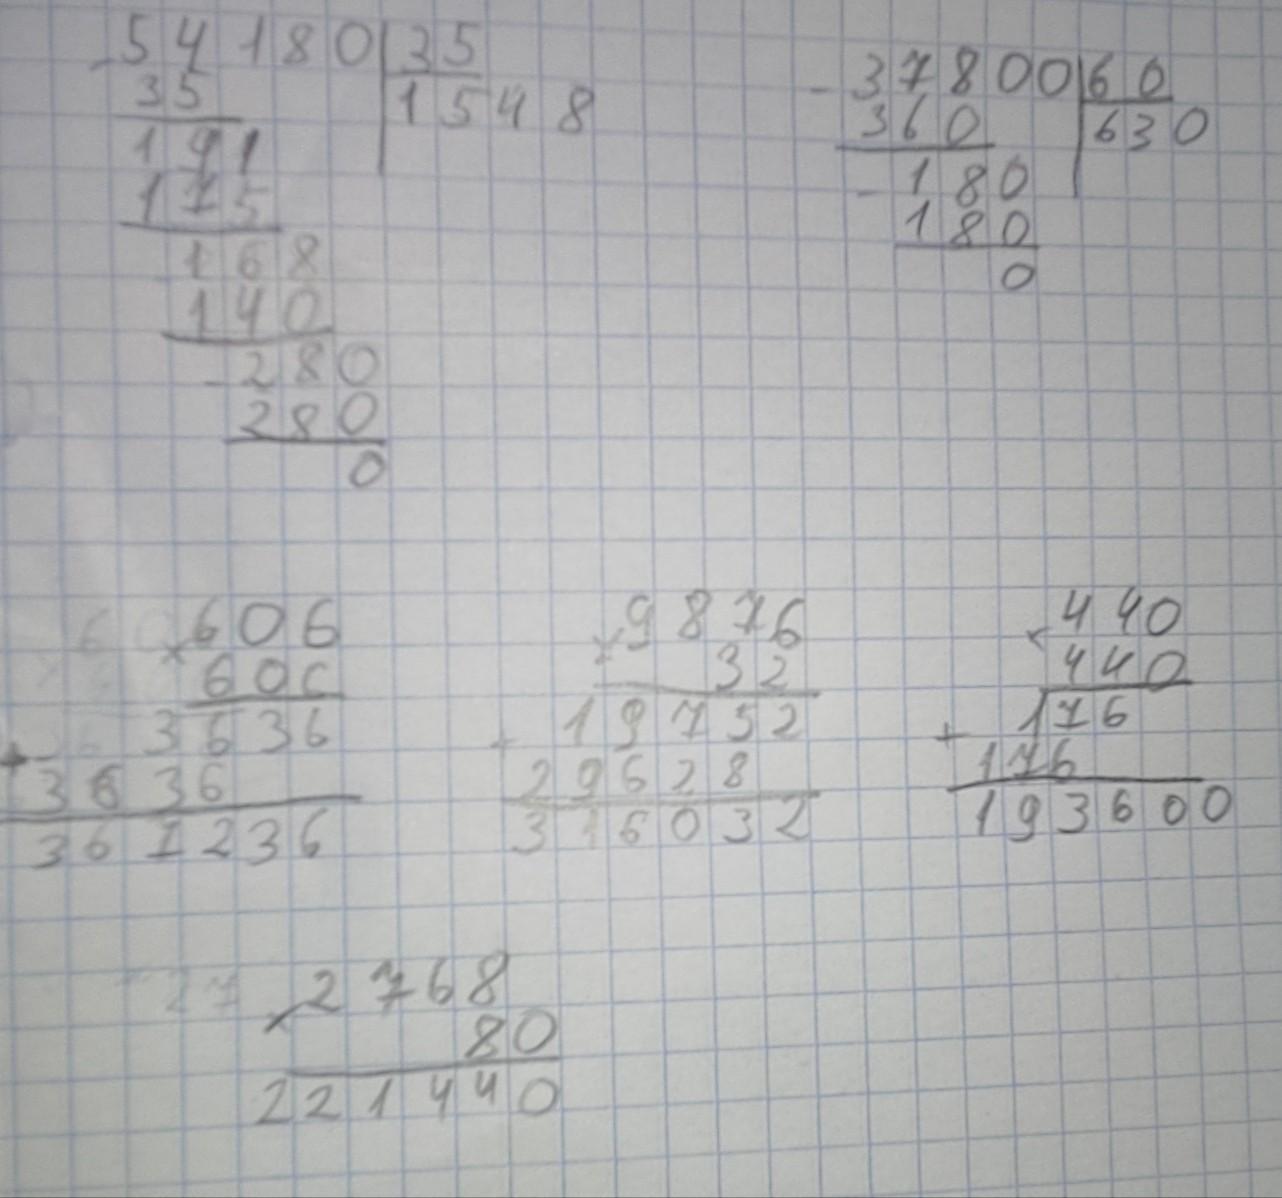 - 54180 | 35
35 | 1548
191
175
168
140
- 280
280
0
- 37800 | 60
360 | 630
- 180
180
0
× 606
606
3636
+ 3636
361236
× 9876
32
19752
+ 29628
316032
× 440
440
176
+ 176
193600
× 2768
80
221440